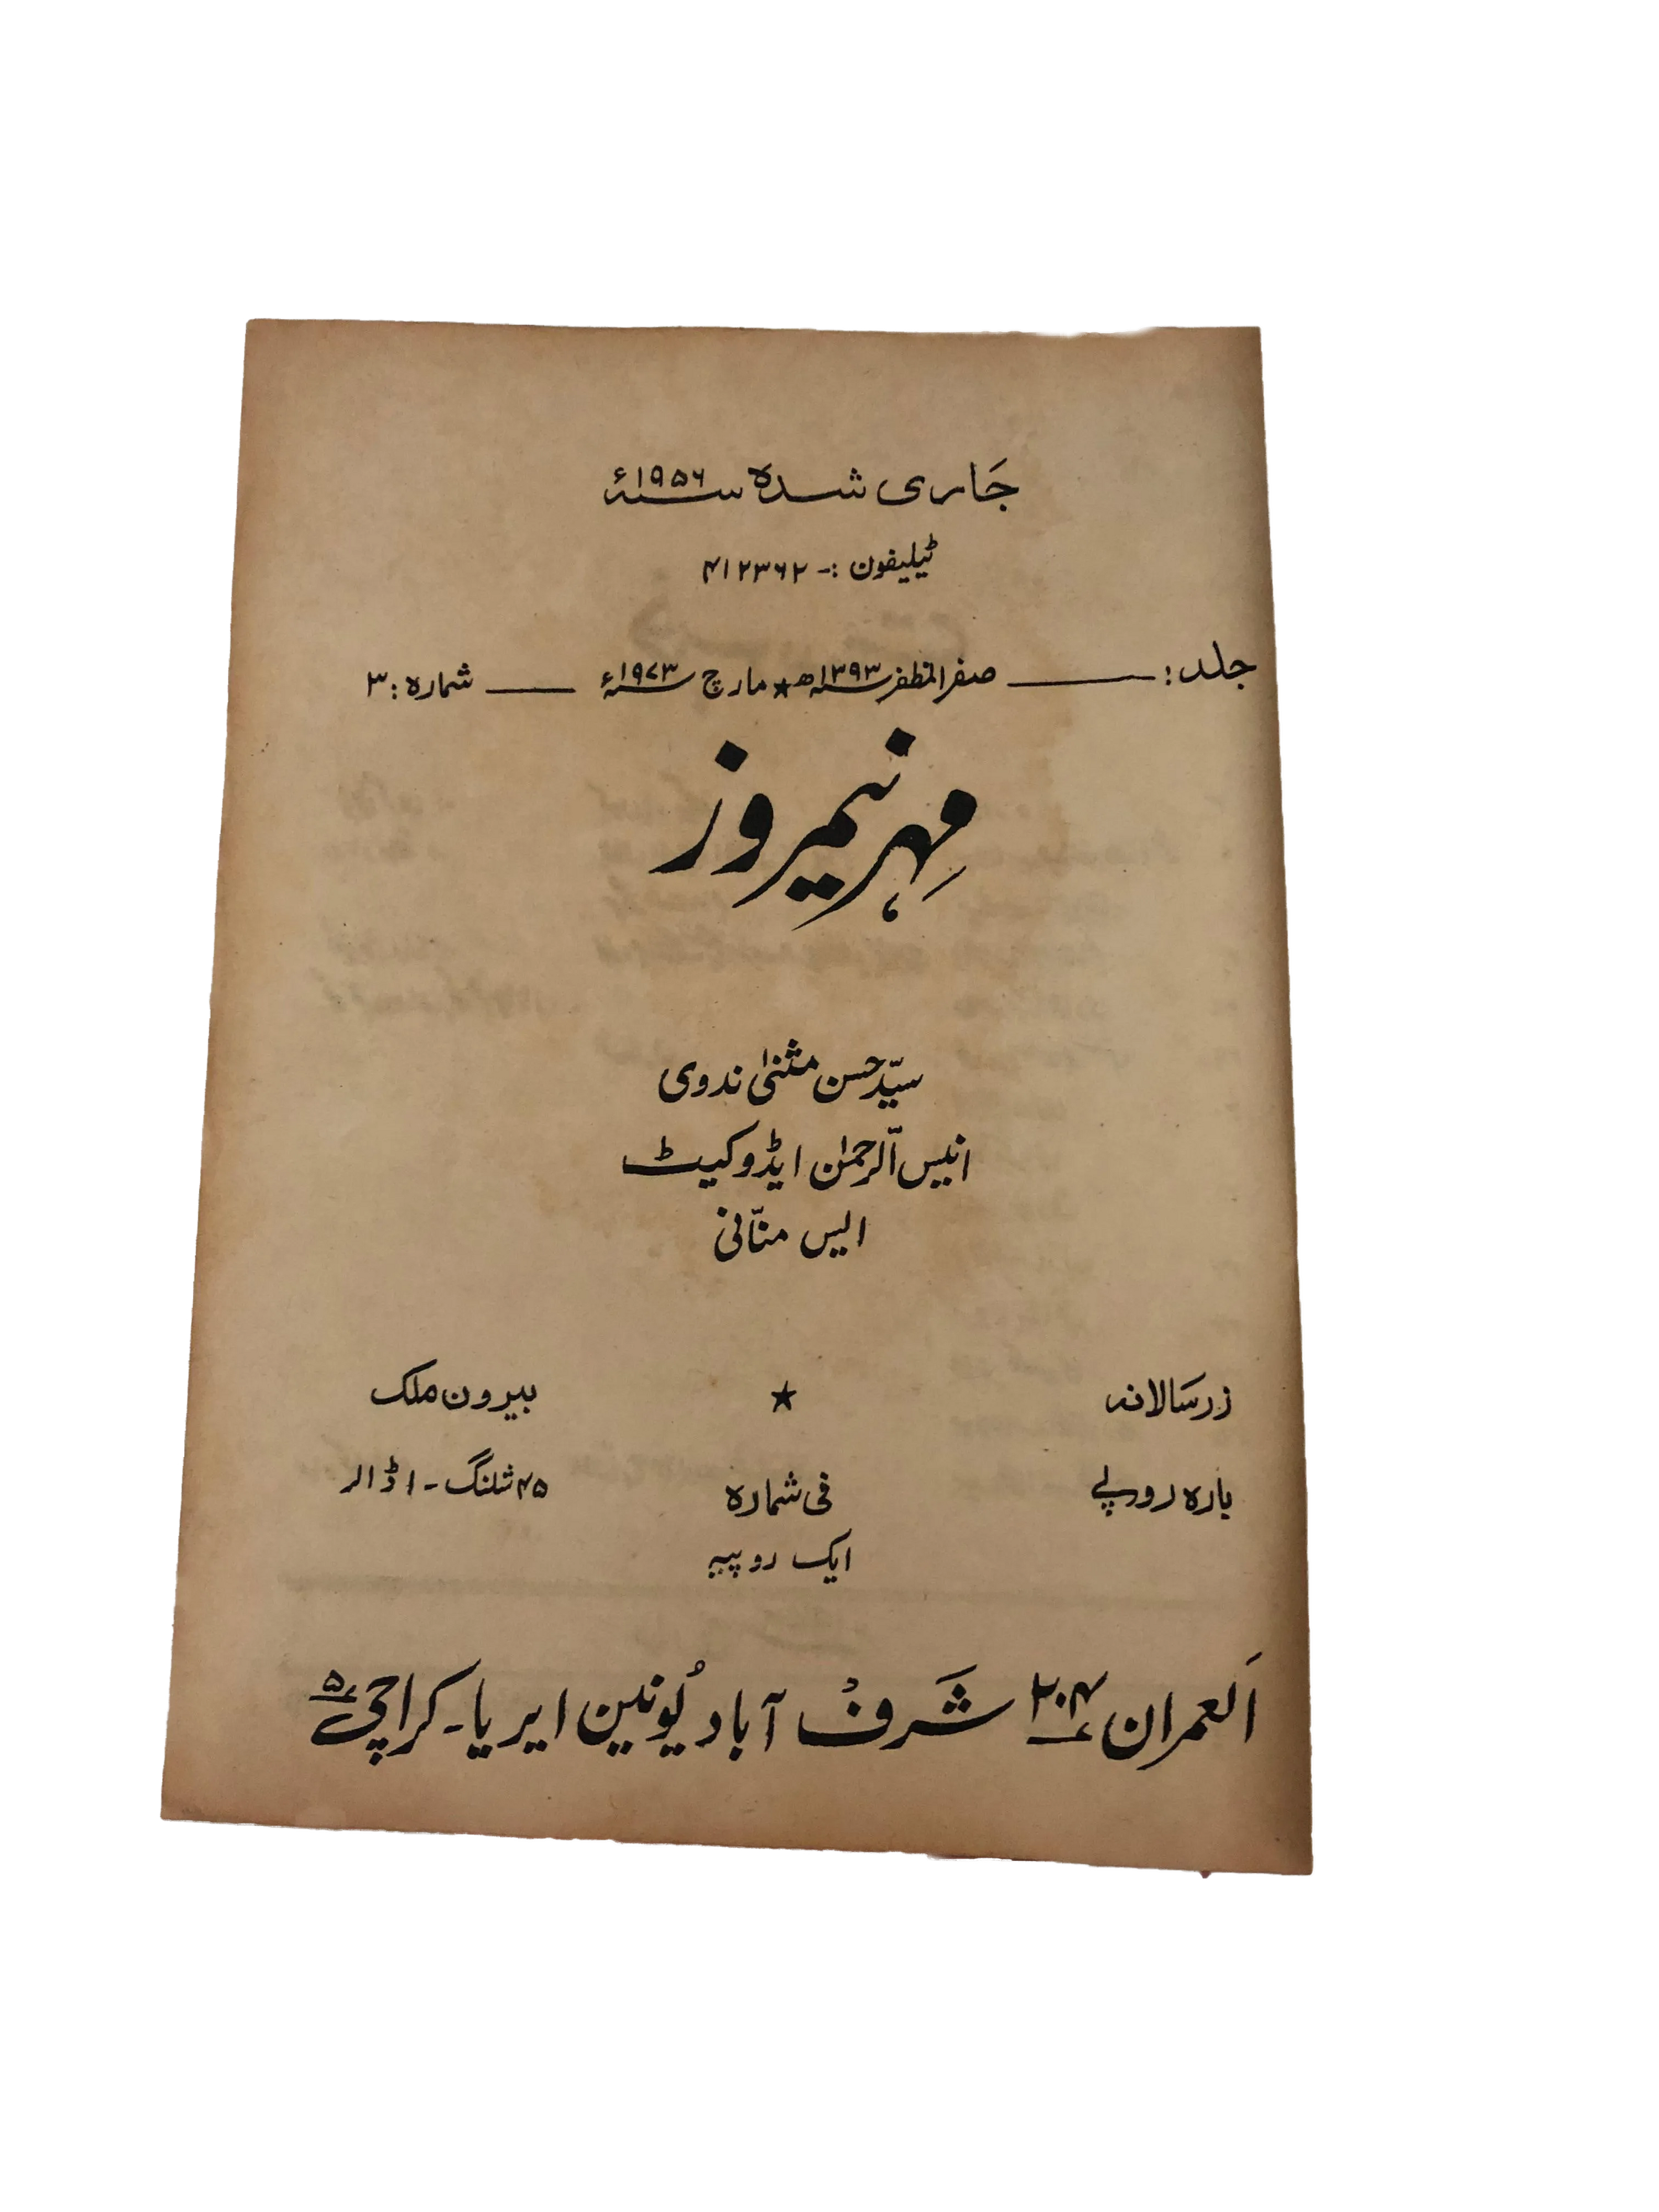 جاری شدہ سنہ ۱۹۵۶ء
ٹیلیفون :- ۴۱۲۳۶۲
جلد : ——— صفر المظفر سنہ ۱۳۹۳ھ ★ مارچ سنہ ۱۹۷۳ء ——— شمارہ : ۳
مہر نیمروز
سیّد حسن مثنیٰ ندوی
انیس الرحمٰن ایڈوکیٹ
ایس منّانی
زر سالانہ ★ بیرون ملک
بارہ روپے فی شمارہ ۴۵ شلنگ - ۱ ڈالر
ایک روپیہ
العمران ۲۰۴ شرف آباد یونین ایریا - کراچی ۵